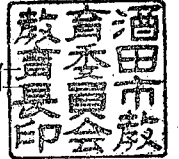 酒田市教
育委員会
教育長印